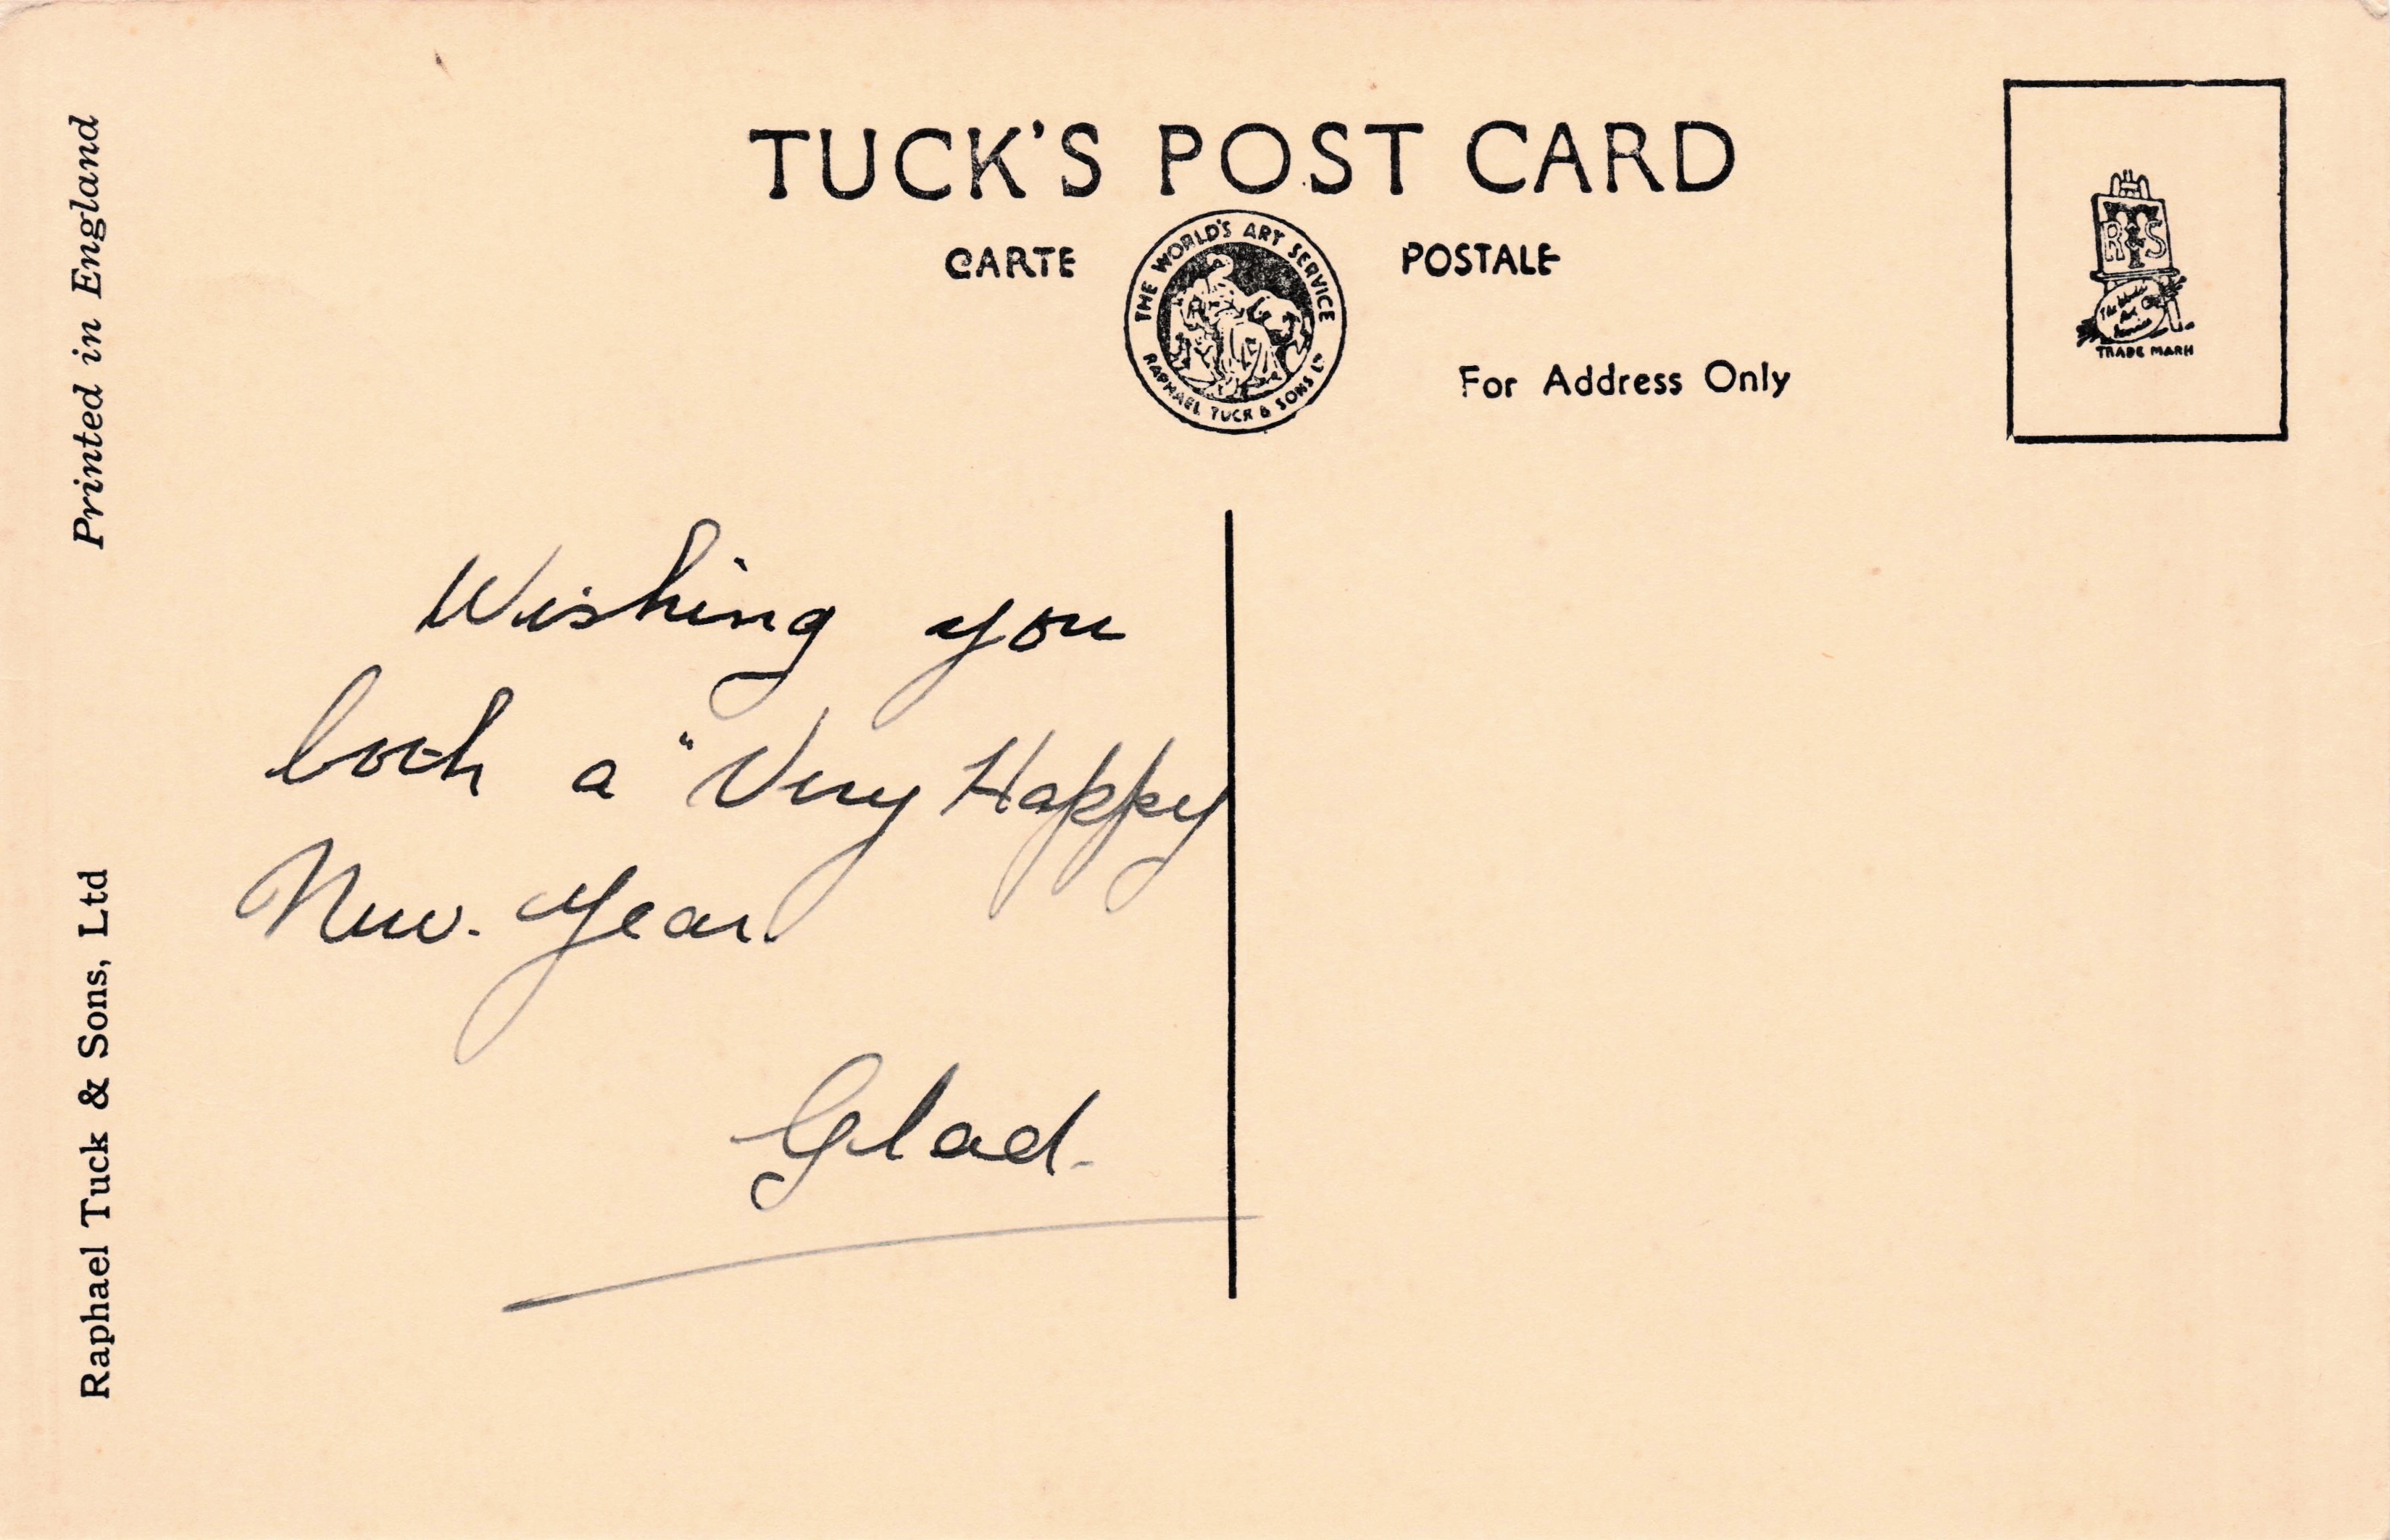 TUCK'S POST CARD
CARTE POSTALE
THE WORLD'S ART SERVICE
RAPHAEL TUCK & SONS LD
For Address Only
R T S
The World's Art Service
TRADE MARK
Printed in England
Raphael Tuck & Sons, Ltd
Wishing you
both a "Very Happy
New. Year.
Glad.